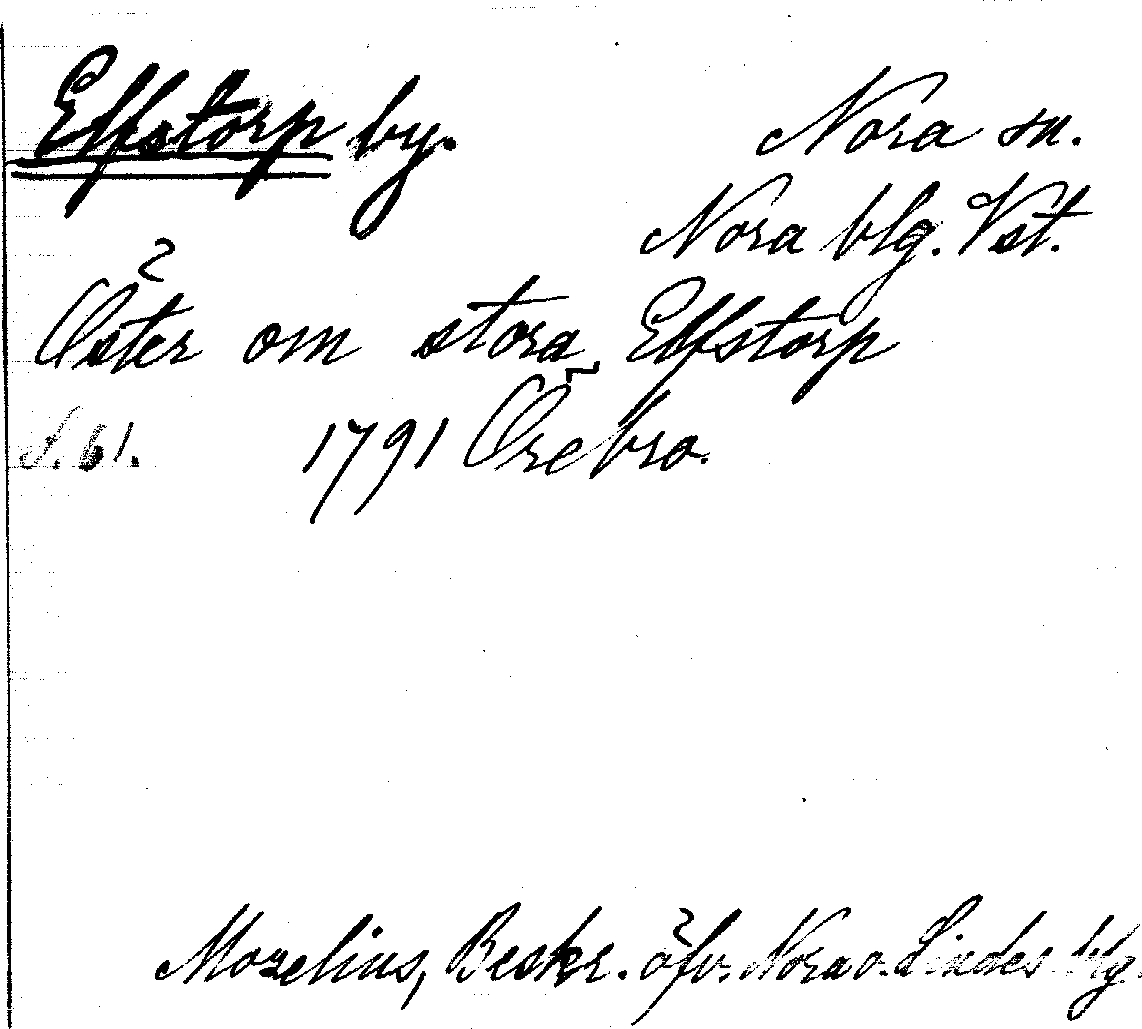 Elfstorp by. Nora sn.
Nora blg. Vst.
Öster om stora Elfstorp
S. 61. 1791 Örebro.
Mozelius, Beskr. öfv. Nora o. Lindes blg.